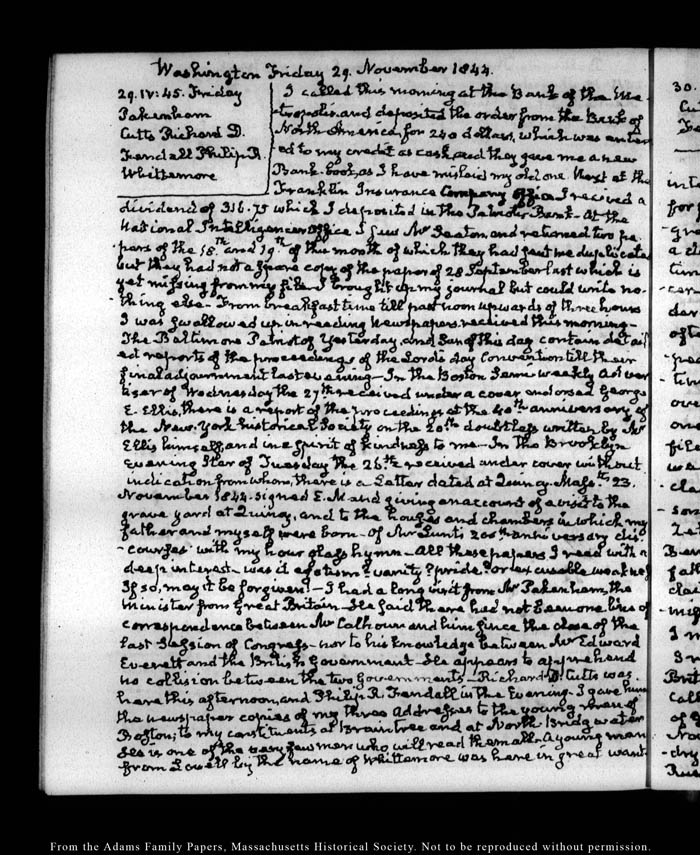 Washington Friday 29. November 1844.
29. IV: 45. Friday
Pakenham
Cutts Richard D.
Fendall Philip R.
Whittemore
I called this morning at the Bank of the Me-
tropolis and deposited the order from the Bank of
North America, for 240 dollars, which was enter
ed to my credit as cash, and they gave me a new
Bank-book, as I have mislaid my old one. Next at the
Franklin Insurance Company office I received a
dividend of 316.75 which I deposited in the Bank. At the
National Intelligencer Office I saw Mr Seaton and returned two pa-
pers of the 18.th and 19.th of this month of which they had sent me duplicates
but they had not a spare copy of the paper of 28 September last which is
yet missing from my file. I brought up my journal but could write no-
thing else. From breakfast time till past noon upwards of three hours
I was swallowed up in reading Newspapers received this morning—
The Baltimore Patriot of Yesterday, and Sun of this day contain detail
ed reports of the proceedings of the Lord's day Convention till their
final adjournment last evening—In the Boston Semi weekly Adver
tiser of Wednesday the 27th received under a cover endorsed George
E. Ellis, there is a report of the proceedings at the 40th anniversary of
the New-York historical Society on the 20th doubtless written by Mr
Ellis himself, and in a spirit of kindness to me—In the Brooklyn
Evening Star of Tuesday the 26.th received under cover without
indication from whom, there is a Letter dated at Quincy. Mass.ts 23.
November 1844. signed E. M. and giving an account of a visit to the
grave yard at Quincy, and to the houses and chambers in which my
father and myself were born—Of Mr Lunt's 200th anniversary dis-
-courses with my hour glass hymn—All these papers I read with a
deep interest—was it egotism? vanity? pride? or excusable weakness
If so, may it be forgiven!—I had a long visit from Mr Pakenham, the
Minister from Great Britain—He said there had not been one line of
correspondence between Mr Calhoun and him since the close of the
last Session of Congress—nor to his knowledge between Mr Edward
Everett and the British Government—He appears to apprehend
no collision between the two Governments—Richard D. Cutts was
here this afternoon, and Philip R. Fendall in the Evening. I gave him
the newspaper copies of my three Addresses to the young men of
Boston; to my constituents at Braintree and at North Bridgwater
He is one of the very few men who will read them all—A young man
from Lowell by the name of Whittemore was here in great want
30.
From the Adams Family Papers, Massachusetts Historical Society. Not to be reproduced without permission.